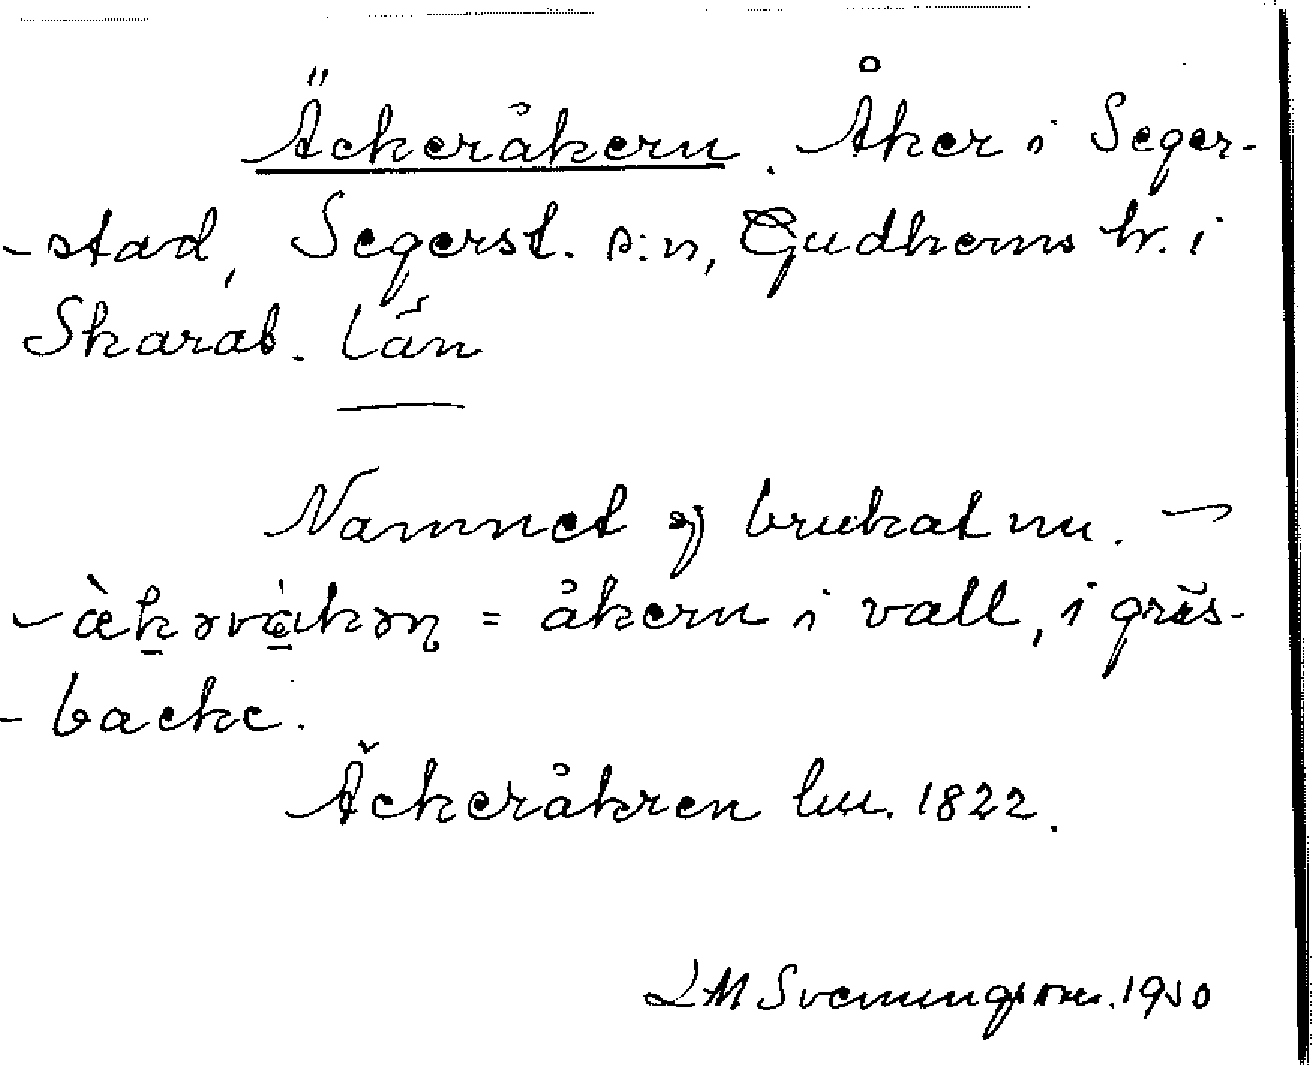 Äckeråkern. Åker i Seger-
-stad, Segerst. s:n, Gudhems hr. i
Skarab. län
Namnet ej brukat nu. -
= åkern i vall, i gräs-
-backe.
Äckeråkren lm. 1822.
L M Svenungsson. 1950